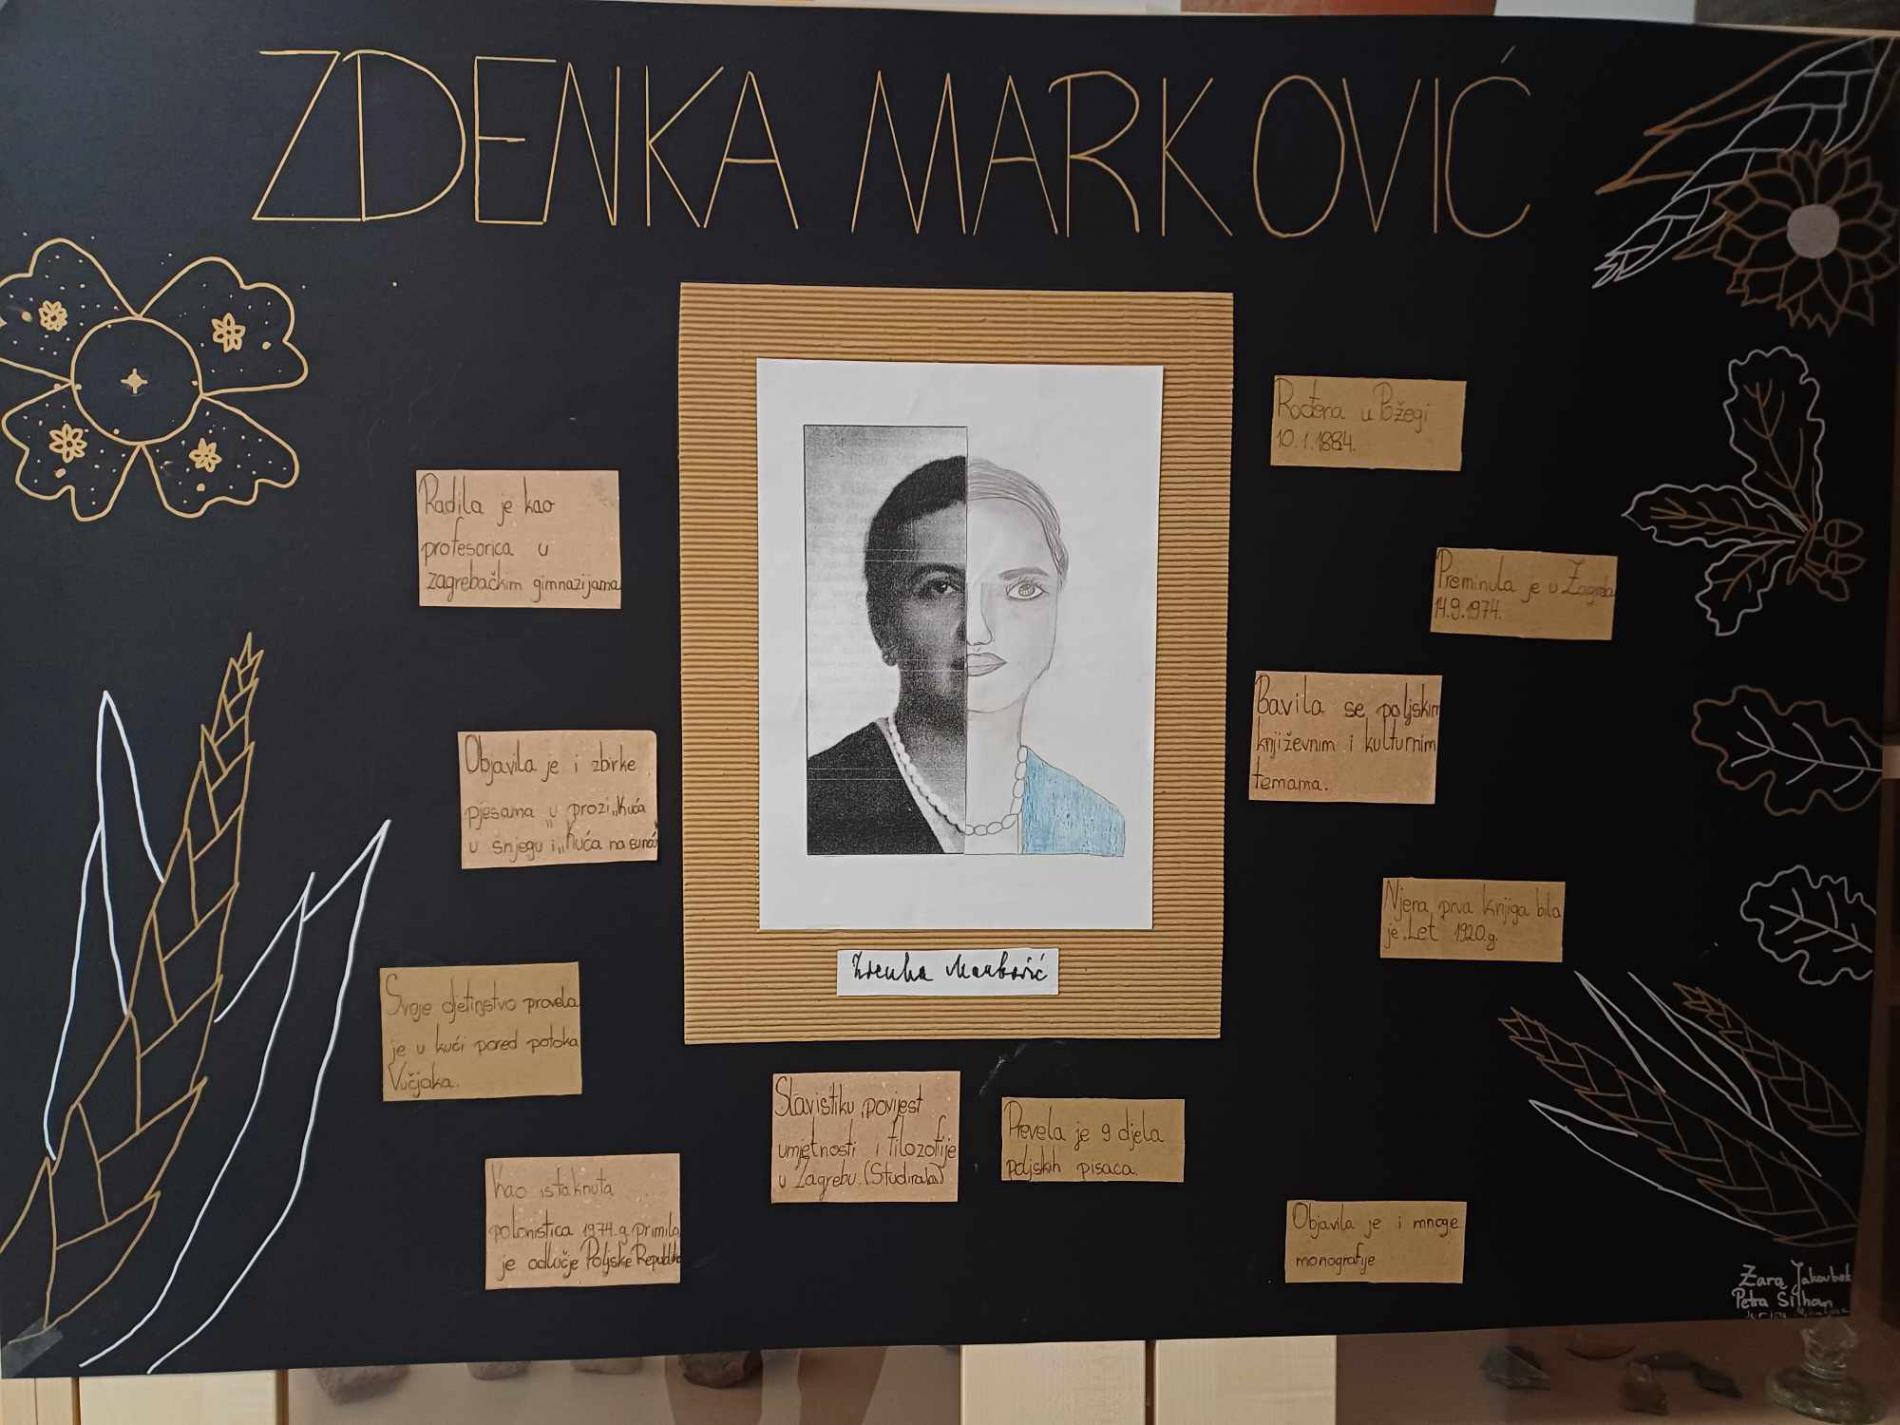 ZDENKA MARKOVIĆ
Rođena u Požegi
10.1.1884.
Radila je kao
profesorica u
zagrebačkim gimnazijama
Preminula je u Zagrebu
14.9.1974.
Bavila se poljskim
književnim i kulturnim
temama.
Objavila je i zbirke
pjesama u prozi „Kuća
u snjegu" i „Kuća na suncu
Njena prva knjiga bila
je Let 1920.g.
Zdenka Marković
Svoje djetinjstvo provela
je u kući pored potoka
Vučjaka.
Slavistiku, povijest
umjetnosti i filozofije
u Zagrebu. (Studirala)
Prevela je 9 djela
poljskih pisaca.
Kao istaknuta
polonistica 1974.g. primila
je odlučje Poljske Republike
Objavila je i mnoge
monografije
Zara Jakoubek
Petra Šilhan